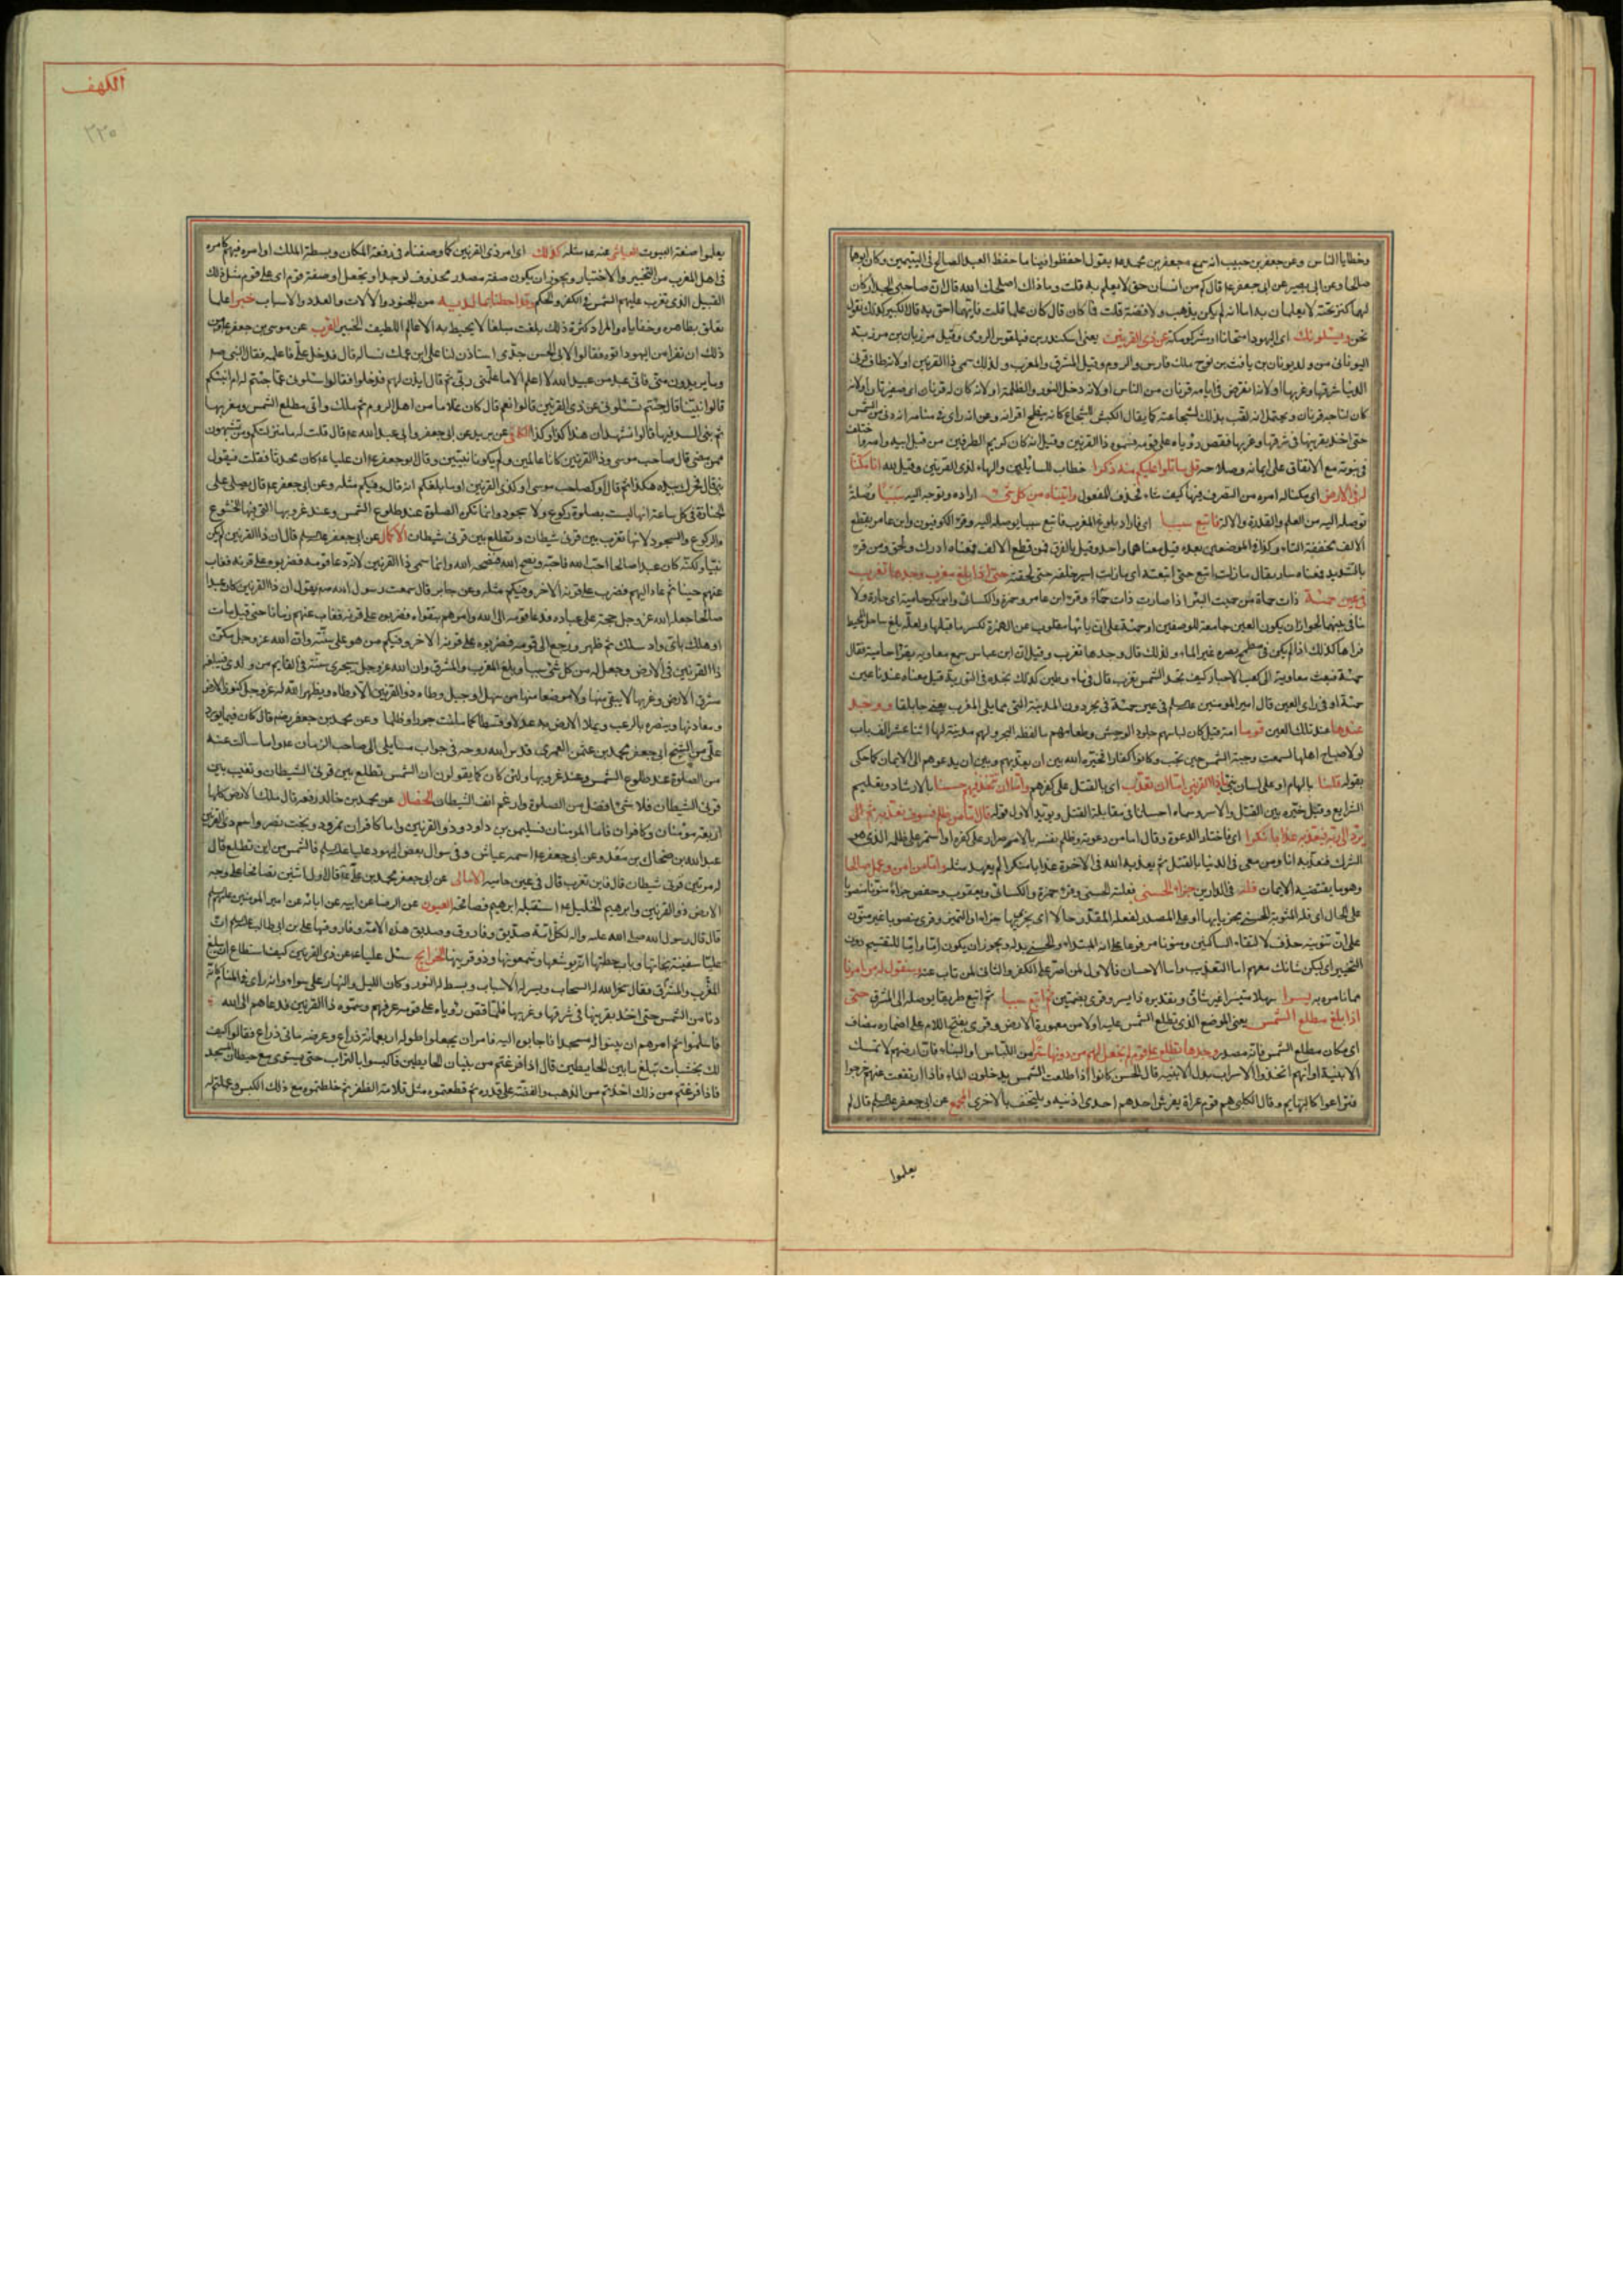 وخطايا الناس وعن جعفر بن حبيب انه سمع جعفر بن محمد يقول احفظوا فينا ما حفظ العبد الصالح في اليتيمين وكان ابوهما
صالحا وعن ابي بصير عن ابي جعفر ع قال كم من انسان حق لا يعلم به قلت وما ذاك اصلحك الله قال ان صاحبي الجدار كان
لهما كنز تحته لا يعلمان به اما انه لم يكن بذهب ولا فضة قلت فما كان قال كان علما قلت فايهما احق به قال الكبير كذلك نقول
نحن ويسئلونك اي اليهود امتحانا او مشركو مكة عن ذي القرنين يعني اسكندر بن فيلقوس الرومي وقيل مرزبان بن مرزبة
اليوناني من ولد يونان بن يافث بن نوح ملك فارس والروم وقيل المشرق والمغرب ولذلك سمى ذا القرنين او لانه طاف قرني
الدنيا شرقها وغربها او لانه انقرض في ايامه قرنان من الناس او لانه دخل النور والظلمة او لانه كان له قرنان اي ضفيرتان او لانه
كان لتاجه قرنان ويحتمل انه لقب بذلك لشجاعته كما يقال الكبش للشجاع كانه ينطح اقرانه وعن انه راى في منامه انه دنى من الشمس
حتى اخذ بقرنيها في شرقها وغربها فقص رؤياه على قومه فسموه ذا القرنين وقيل انه كان كريم الطرفين من قبل ابيه وامه واختلف
في نبوته مع الاتفاق على ايمانه وصلاحه قل ساتلوا عليكم منه ذكرا خطاب للسائلين والهاء لذي القرنين وقيل لله انا مكنا
له في الارض اي مكنا له امره من التصرف فيها كيف شاء فحذف المفعول واتيناه من كل شئ اراده وتوجه اليه سببا وصلة
توصله اليه من العلم والقدرة والالة فاتبع سببا اي فاراد بلوغ المغرب فاتبع سببا يوصله اليه وقرء الكوفيون وابن عامر بقطع
الالف مخففة التاء وكذا في الموضعين بعده قيل معناهما واحد وقيل بالفرق فمن قطع الالف فمعناه ادرك ولحق ومن قرء
بالتشديد فمعناه سار يقال ما زلت اتبع حتى اتبعته اي ما زلت اسير خلفه حتى لحقته حتى اذا بلغ مغرب الشمس وجدها تغرب
في عين حمئة ذات حماة من حميت البئر اذا صارت ذات حماة وقرء ابن عامر وحمزة والكسائي وابو بكر حامية اي حارة ولا
تنافي بينهما لجواز ان يكون العين جامعة للوصفين او حمئة على ان يائها مقلوب عن الهمزة لكسر ما قبلها ولعله بلغ ساحل المحيط
فراها كذلك اذا لم يكن في مطمح بصره غير الماء ولذلك قال وجدها تغرب وقيل ان ابن عباس سمع معاوية يقرا حامية فقال
حمئة فبعث معاوية الى كعب الاحبار كيف تجد الشمس تغرب قال في ماء وطين كذلك نجده في التورية قيل معناه عندنا عين
حمئة او في راى العين قال امير المومنين في عين حمئة في بحر دون المدينة التي مما يلي المغرب يعني جابلقا ووجد
عندها عند تلك العين قوما امة قيل كان لباسهم جلود الوحش وطعامهم ما لفظه البحر ولهم مدينة لها اثنا عشر الف باب
لولا صياح اهلها لسمعت وجبة الشمس حين تجب وكانوا كفارا فخيره الله بين ان يعذبهم وبين ان يدعوهم الى الايمان كما حكى
بقوله قلنا بالهام او على لسان نبي يا ذا القرنين اما ان تعذب اي بالقتل على كفرهم واما ان تتخذ فيهم حسنا بالارشاد وتعليم
الشرايع وقيل خيره بين القتل والاسر وسماه احسانا في مقابلة القتل ويؤيد الاول قوله قال اما من ظلم فسوف نعذبه ثم
يرد الى ربه فيعذبه عذابا نكرا اي فاختار الدعوة وقال اما من دعوته وظلم نفسه بالاصرار على كفره او استمر على ظلمه الذي هو
الشرك فنعذبه انا ومن معي في الدنيا بالقتل ثم يعذبه الله في الاخرة عذابا منكرا لم يعهد مثله واما من امن وعمل صالحا
وهو ما يقتضيه الايمان فله في الدارين جزاء الحسنى فعلته الحسنى وقرء حمزة والكسائي ويعقوب وحفص جزاء منونا منصوبا
على الحال اي فله المثوبة الحسنى مجزيا بها او على المصدر لفعله المقدر حالا اي يجزي بها جزاء او التمييز وقرئ منصوبا غير منون
على ان تنوينه حذف لالتقاء الساكنين ومنونا مرفوعا على انه المبتداء والحسنى بدله ويجوز ان يكون اما واما للتقسيم دون
التخيير اي ليكن شانك معهم اما التعذيب واما الاحسان فالاول لمن اصر على الكفر والثاني لمن تاب عنه وسنقول له من امرنا
مما نامره به يسرا سهلا متيسرا غير شاق وتقديره ذا يسر وقرئ بضمتين ثم اتبع سببا ثم اتبع طريقا يوصله الى المشرق حتى
اذا بلغ مطلع الشمس يعني الموضع الذي تطلع الشمس عليه اولا من معمورة الارض وقرئ بفتح اللام على اضمار مضاف
اي مكان مطلع الشمس فانه مصدر وجدها تطلع على قوم لم نجعل لهم من دونها سترا من اللباس او البناء فان ارضهم لا تمسك
الابنية او انهم اتخذوا الاسراب بدل الابنية قال الحسن كانوا اذا طلعت الشمس يدخلون الماء فاذا ارتفعت عنهم خرجوا
فتراعوا كالبهايم وقال الكلبي هم قوم عراة يفرش احدهم احدى اذنيه ويلتحف بالاخرى المجمع عن ابي جعفر قال لم
يعلموا
الكهف
٢٢٠
يعلموا صنعة البيوت العياشي عنه ع مثله كذلك اي امر ذي القرنين كما وصفناه في رفعة المكان وبسطة الملك او امره فيهم كامره
في اهل المغرب من التخيير والاختيار ويجوز ان يكون صفة مصدر محذوف لوجد او نجعل او صفة قوم اي على قوم مثل ذلك
القبيل الذي تغرب عليهم الشمس في الكفر والحكم وقد احطنا بما لديه من الجنود والالات والعدد والاسباب خبرا علما
تعلق بظاهره وخفاياه والمراد كثرة ذلك بلغت مبلغا لا يحيط به الا علم اللطيف الخبير القرب عن موسى بن جعفر
ذلك ان نفرا من اليهود اتوه فقالوا لابي الحسن جدي استاذن لنا على ابن عمك نساله قال فدخل علي فاعلمه فقال النبي ص
وما يريدون مني فاني عبد من عبيد الله لا اعلم الا ما علمني ربي ثم قال ايذن لهم فدخلوا فقالوا تسئلوني عما جئتم له ام انبئكم
قالوا نبئنا قال جئتم تسئلوني عن ذي القرنين قالوا نعم قال كان غلاما من اهل الروم ثم ملك واتى مطلع الشمس ومغربها
ثم بنى السد فيها قالوا نشهد ان هذا كذا وكذا الكافي عن بريد عن ابي جعفر وابي عبد الله ع قال قلت له ما منزلتكم ومن تشبهون
ممن مضى قال صاحب موسى وذا القرنين كانا عالمين ولم يكونا نبيين وقال ابو جعفر ع ان عليا ع كان محدثا فقلت فيقول
نبي قال فحرك بيده هكذا ثم قال او كصاحب موسى او كذي القرنين او ما بلغكم انه قال وفيكم مثله وعن ابي جعفر ع قال يصلى على
الجنازة في كل ساعة انها ليست بصلوة ركوع ولا سجود وانما تكره الصلوة عند طلوع الشمس وعند غروبها التي فيها الخشوع
والركوع والسجود لانها تغرب بين قرني شيطان وتطلع بين قرني شيطان الاكمال عن ابي جعفر قال ان ذا القرنين لم يكن
نبيا ولكنه كان عبدا صالحا احب الله فاحبه ونصح الله فنصحه الله وانما سمى ذا القرنين لانه دعا قومه فضربوه على قرنه فغاب
عنهم حينا ثم عاد اليهم فضرب على قرنه الاخر وفيكم مثله وعن جابر قال سمعت رسول الله ص يقول ان ذا القرنين كان عبدا
صالحا جعله الله عز وجل حجة على عباده فدعا قومه الى الله وامرهم بتقواه فضربوه على قرنه فغاب عنهم زمانا حتى قيل مات
او هلك باي واد سلك ثم ظهر ورجع الى قومه فضربوه على قرنه الاخر وفيكم من هو على سنته وان الله عز وجل مكن
ذا القرنين في الارض وجعل له من كل شئ سببا وبلغ المغرب والمشرق وان الله عز وجل سيجري سنته في القايم من ولدي فيبلغه
شرق الارض وغربها لا يبقى منها ولا موضعا منها من سهل او جبل وطاه ذو القرنين الا وطاه ويظهر الله له عز وجل كنوز الارض
ومعادنها وينصره بالرعب ويملا الارض به عدلا وقسطا كما ملئت جورا وظلما وعن محمد بن جعفر رضه قال كان فيما يورد
علي من الشيخ ابي جعفر محمد بن عثمن العمري قدس الله روحه في جواب مسايلي الى صاحب الزمان ع واما ما سالت عنه
من الصلوة عند طلوع الشمس وعند غروبها ولئن كان كما يقولون ان الشمس تطلع بين قرني الشيطان وتغيب بين
قرني الشيطان فلا شئ افضل من الصلوة وارغم انف الشيطان الخصال عن محمد بن خالد رفعه قال ملك الارض كلها
اربعة مؤمنان وكافران فاما المومنان فسليمن بن داود وذو القرنين واما كافران نمرود وبخت نصر واسم ذي القرنين
عبد الله بن ضحاك بن معد وعن ابي جعفر ع اسمه عياش وفي سوال بعض اليهود عليا قال فالشمس من اين تطلع قال
له من بين قرني شيطان قال فاين تغرب قال في عين حامية الامالي عن ابي جعفر محمد بن علي ع قال اول اثنين تصافحا على وجه
الارض ذو القرنين وابرهيم الخليل ع استقبله ابرهيم فصافحه العيون عن الرضا عن ابيه عن ابائه عن امير المومنين
قال قال رسول الله صلى الله عليه واله لكل امة صديق وفاروق وصديق هذه الامة وفاروقها علي بن ابي طالب ان
عليا سفينة نجاتها وباب حطتها انه يوشعها وشمعونها وذو قرنيها الخرايج سئل عليا ع عن ذي القرنين كيف استطاع ان يبلغ
المغرب والمشرق فقال سخر الله له السحاب ويسر له الاسباب وبسط له النور وكان الليل والنهار على سواء وانه راى في المنام كانه
دنا من الشمس حتى اخذ بقرنيها في شرقها وغربها فلما قص رؤياه على قومه عرفهم وسموه ذا القرنين فدعاهم الى الله
فاسلموا ثم امرهم ان يبنوا له مسجدا فاجابوا اليه فامر ان يجعلوا طوله اربعمائة ذراع وعرضه مائتي ذراع فقالوا كيف
لك بخشبات تبلغ ما بين الحايطين قال اذا فرغتم من بنيان الحايطين فاكبسوا بالتراب حتى يستوي مع حيطان المسجد
فاذا فرغتم من ذلك اخذتم من الذهب والفضة على قدره ثم قطعتموه مثل قلامة الظفر ثم خلطتموه مع ذلك الكبس